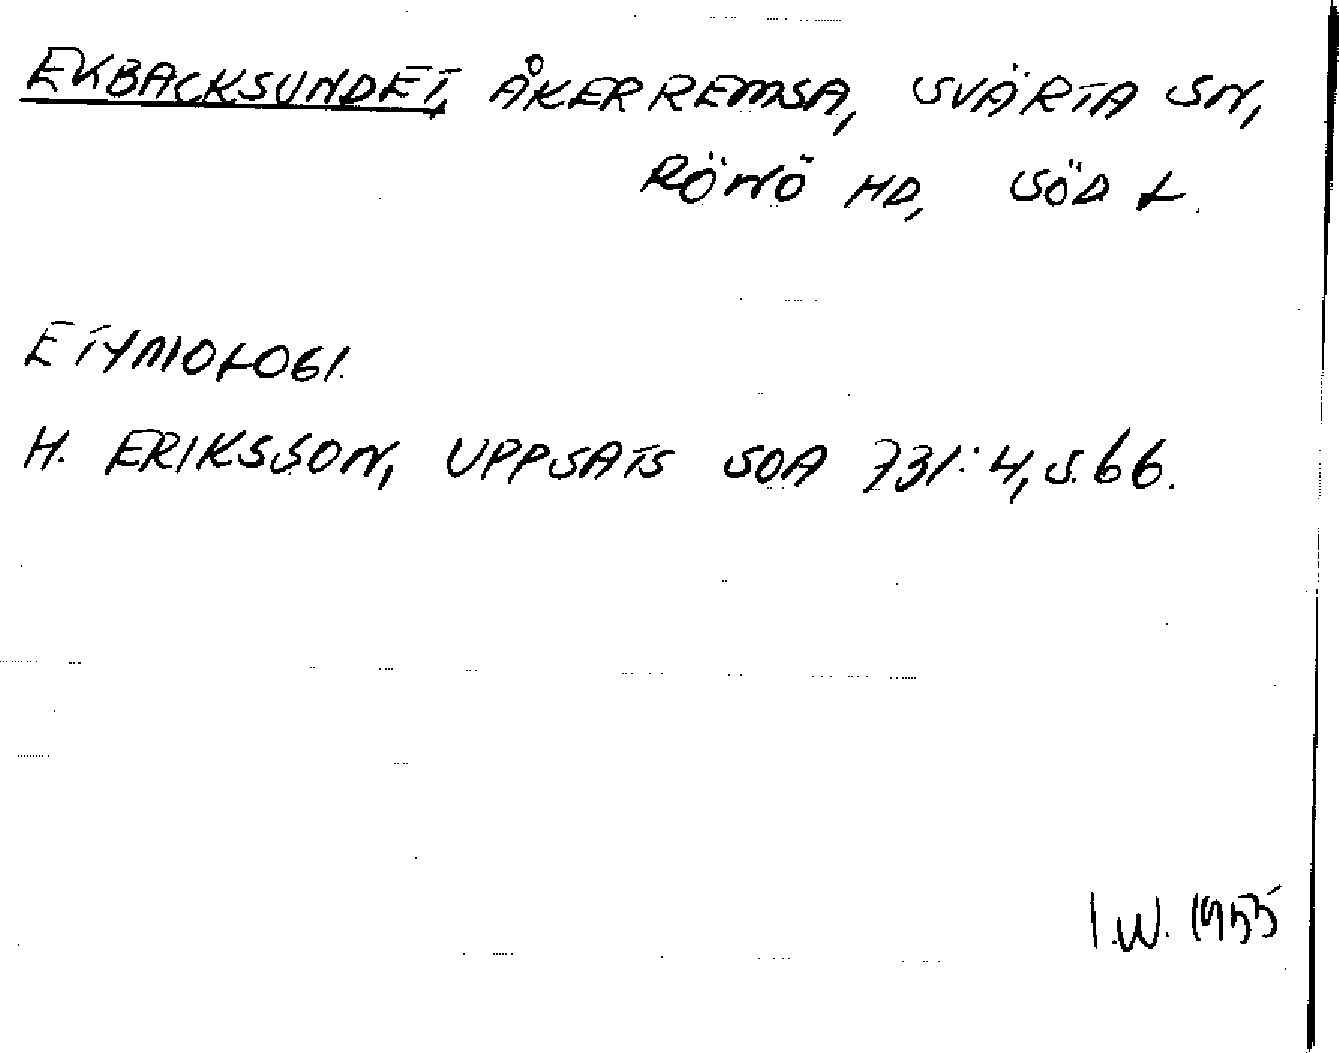 EKBACKSUNDET, ÅKERREMSA, SVÄRTA SN,
RÖNÖ HD, SÖD L.
ETYMOLOGI.
H. ERIKSSON, UPPSATS SOA 731:4, S.66.
I.W. 1955